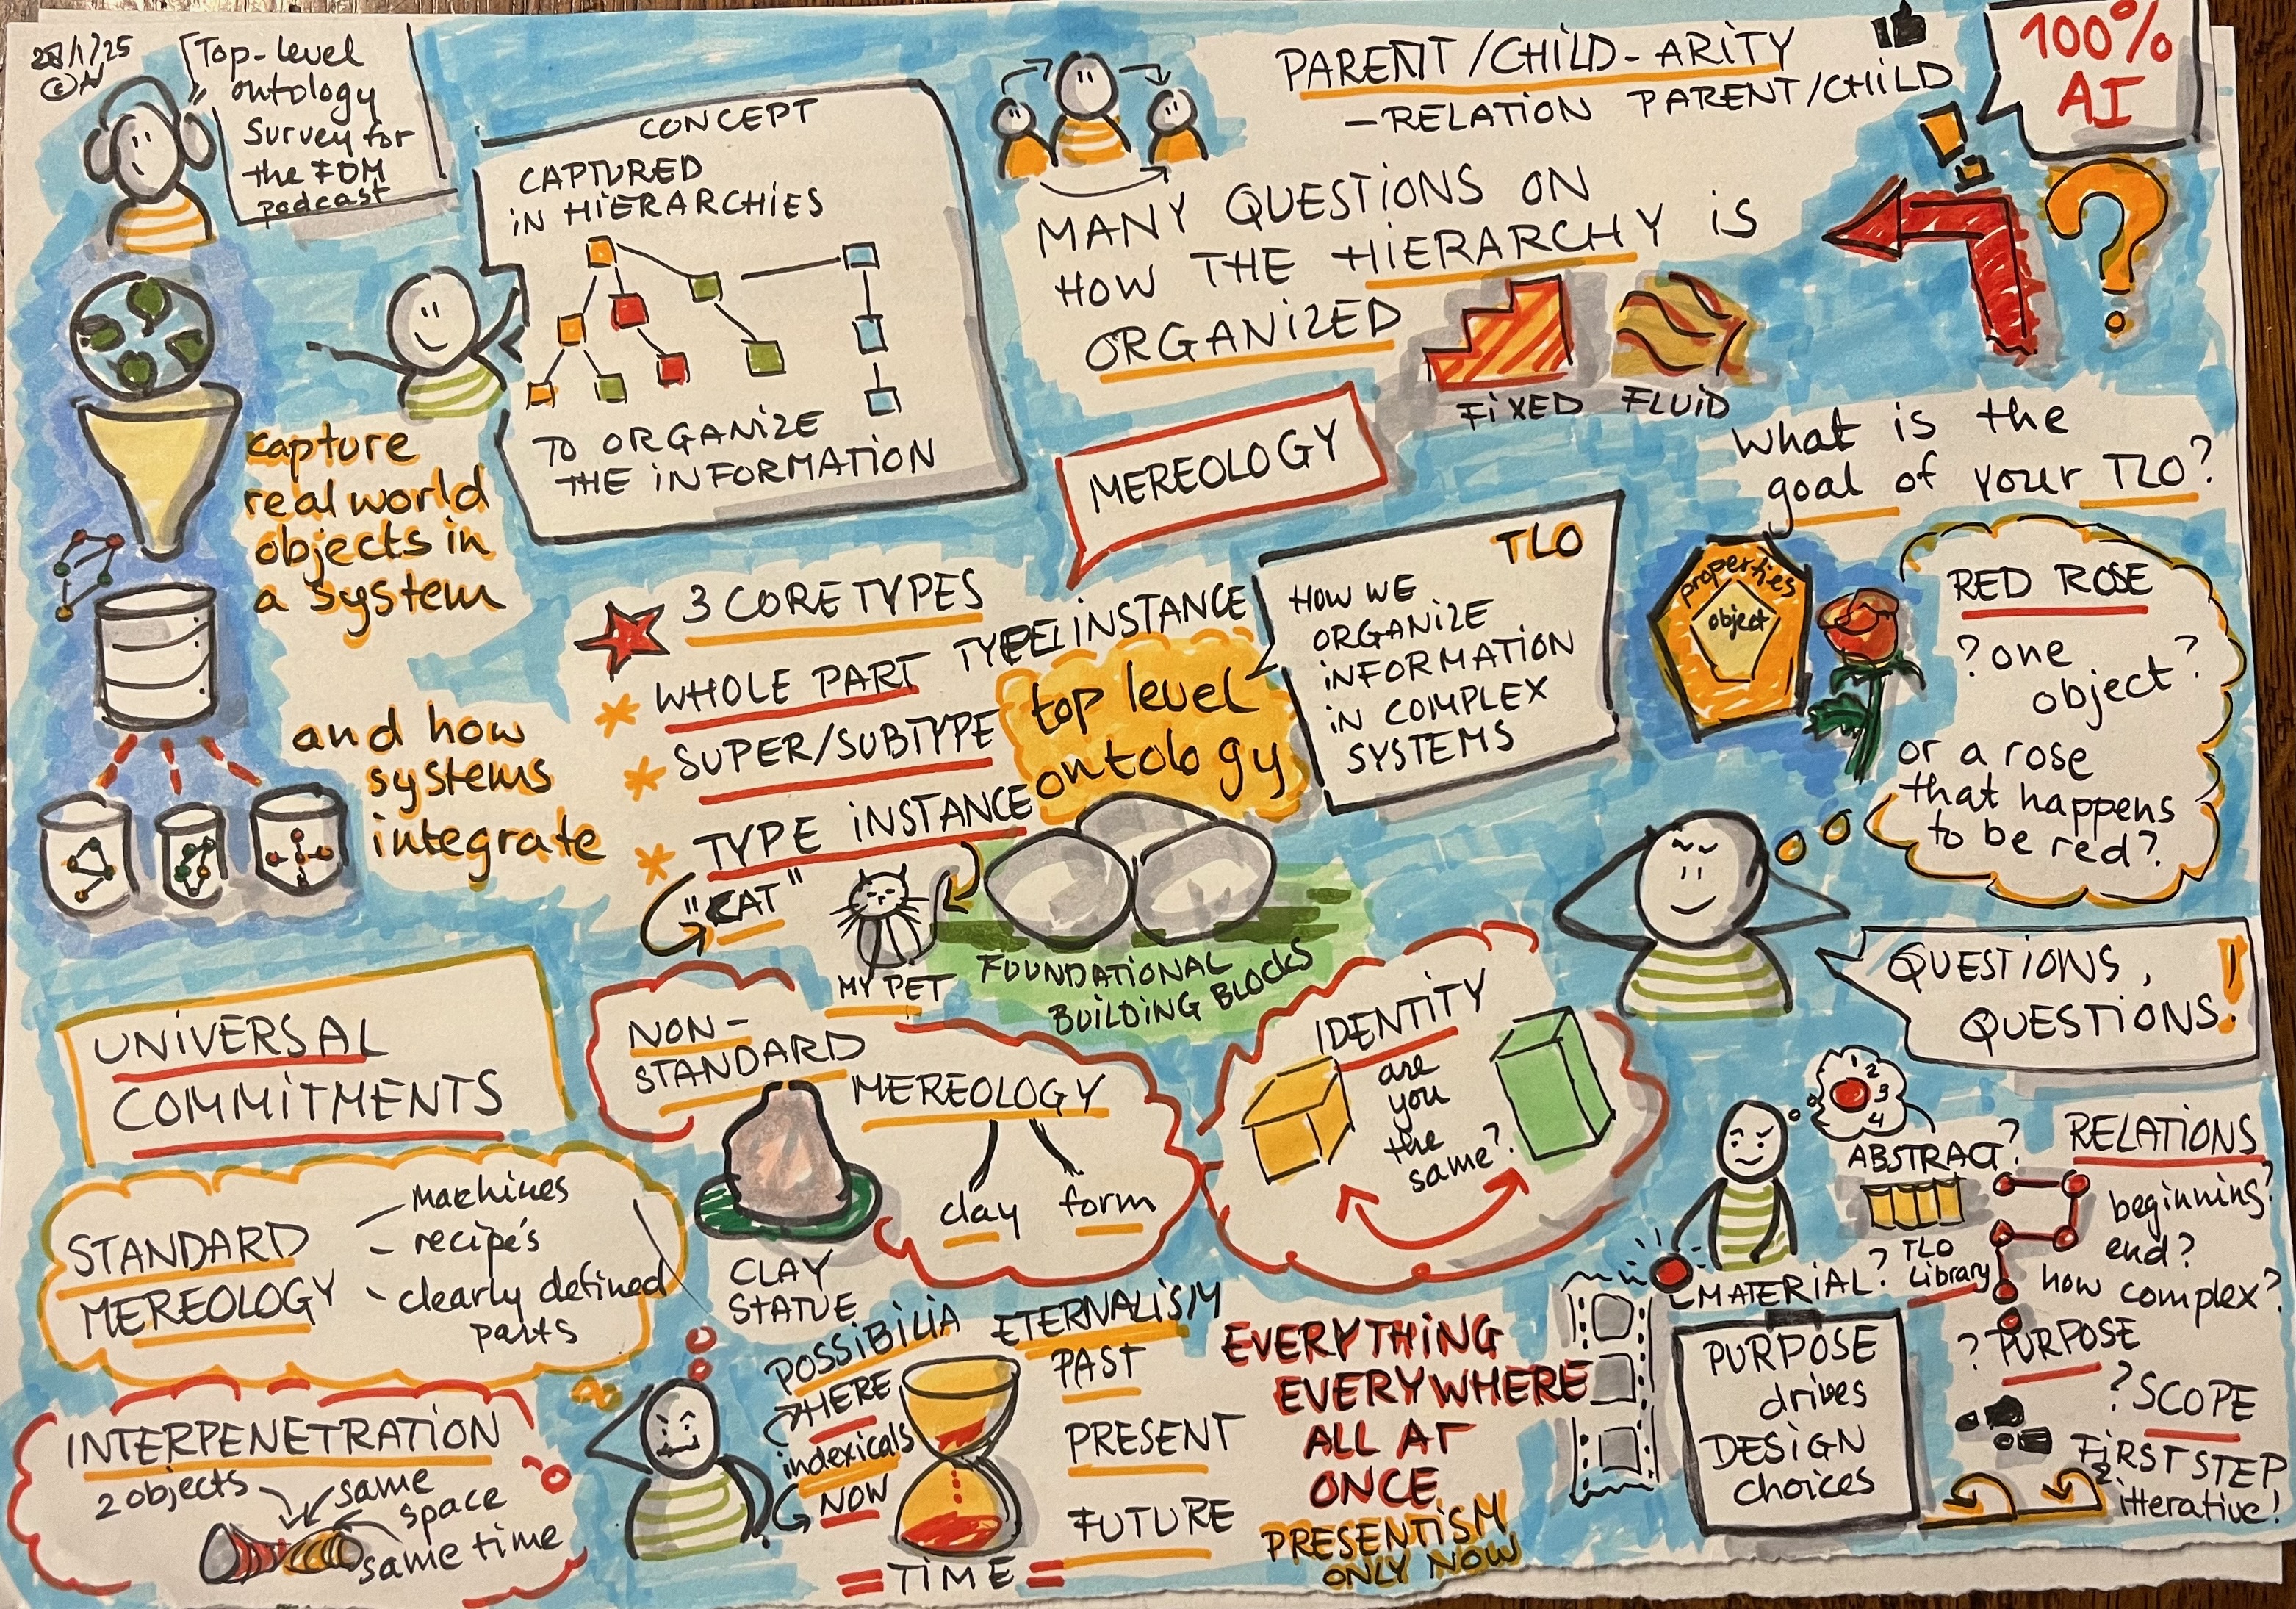 28/1/25
Top-level
ontology
Survey for
the FDM
podcast
CONCEPT
CAPTURED
IN HIERARCHIES
TO ORGANIZE
THE INFORMATION
PARENT/CHILD-ARITY
-RELATION PARENT/CHILD
100%
AI
MANY QUESTIONS ON
HOW THE HIERARCHY IS
ORGANIZED
FIXED
FLUID
capture
real world
objects in
a system
and how
systems
integrate
MEREOLOGY
What is the
goal of your TLO?
3 CORE TYPES
WHOLE PART
SUPER/SUBTYPE
TYPE INSTANCE
"CAT"
MY PET
INSTANCE
top level
ontology
FOUNDATIONAL
BUILDING BLOCKS
TLO
HOW WE
ORGANIZE
INFORMATION
IN COMPLEX
SYSTEMS
properties
object
RED ROSE
? one
object?
or a rose
that happens
to be red?
QUESTIONS,
QUESTIONS!
UNIVERSAL
COMMITMENTS
STANDARD
MEREOLOGY
- machines
- recipe's
- clearly defined
parts
INTERPENETRATION
2 objects
same
space
same time
NON-
STANDARD
MEREOLOGY
clay form
CLAY
STATUE
IDENTITY
are
you
the
same?
POSSIBILIA
HERE
indexicals
NOW
=TIME=
ETERNALISM
PAST
PRESENT
FUTURE
EVERYTHING
EVERYWHERE
ALL AT
ONCE
PRESENTISM
ONLY NOW
1
2
3
4
ABSTRACT?
MATERIAL?
TLO
Library
RELATIONS
beginning?
end?
how complex?
PURPOSE
drives
DESIGN
choices
? PURPOSE
? SCOPE
FIRST STEP
itterative!